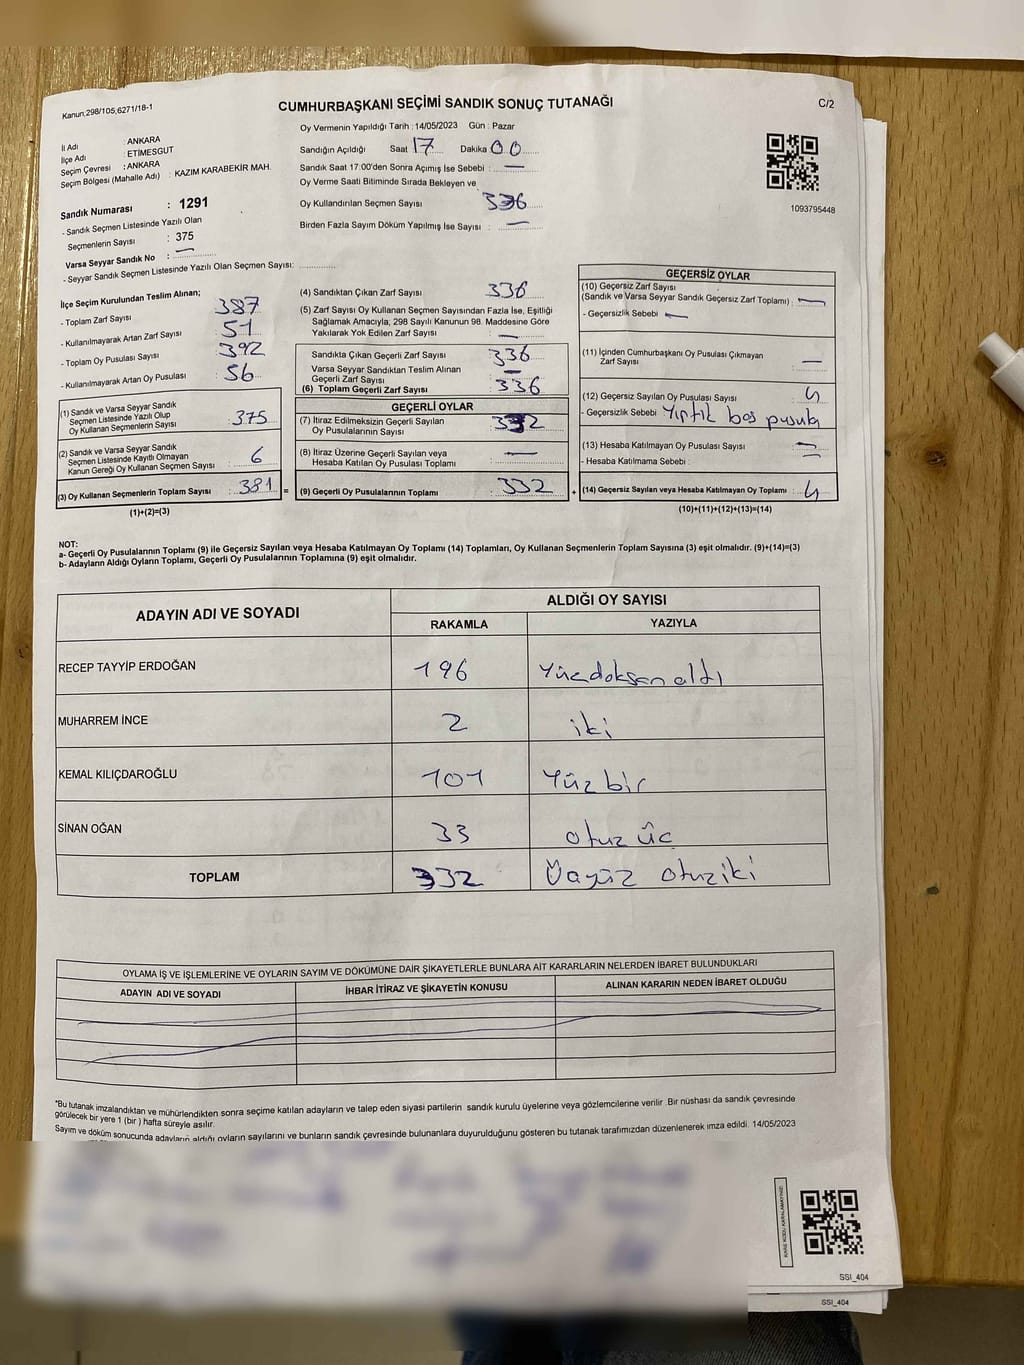 Kanun,298/105,6271/18-1
CUMHURBAŞKANI SEÇİMİ SANDIK SONUÇ TUTANAĞI
C/2
İl Adı : ANKARA
İlçe Adı : ETİMESGUT
Seçim Çevresi : ANKARA
Seçim Bölgesi (Mahalle Adı) : KAZIM KARABEKİR MAH.
Sandık Numarası : 1291
- Sandık Seçmen Listesinde Yazılı Olan
Seçmenlerin Sayısı : 375
Varsa Seyyar Sandık No : —
- Seyyar Sandık Seçmen Listesinde Yazılı Olan Seçmen Sayısı: ..............
Oy Vermenin Yapıldığı Tarih : 14/05/2023 Gün : Pazar
Sandığın Açıldığı Saat 17 Dakika 00
Sandık Saat 17:00'den Sonra Açımış İse Sebebi : —
Oy Verme Saati Bitiminde Sırada Bekleyen ve
Oy Kullandırılan Seçmen Sayısı 336
Birden Fazla Sayım Döküm Yapılmış İse Sayısı : —
1093795448
İlçe Seçim Kurulundan Teslim Alınan;
- Toplam Zarf Sayısı 387
- Kullanılmayarak Artan Zarf Sayısı 51
- Toplam Oy Pusulası Sayısı 392
- Kullanılmayarak Artan Oy Pusulası 56
(1) Sandık ve Varsa Seyyar Sandık
Seçmen Listesinde Yazılı Olup
Oy Kullanan Seçmenlerin Sayısı 375
(2) Sandık ve Varsa Seyyar Sandık
Seçmen Listesinde Kayıtlı Olmayan
Kanun Gereği Oy Kullanan Seçmen Sayısı 6
(3) Oy Kullanan Seçmenlerin Toplam Sayısı : 381 =
(1)+(2)=(3)
(4) Sandıktan Çıkan Zarf Sayısı 336
(5) Zarf Sayısı Oy Kullanan Seçmen Sayısından Fazla İse, Eşitliği
Sağlamak Amacıyla; 298 Sayılı Kanunun 98. Maddesine Göre
Yakılarak Yok Edilen Zarf Sayısı —
Sandıkta Çıkan Geçerli Zarf Sayısı 336
Varsa Seyyar Sandıktan Teslim Alınan
Geçerli Zarf Sayısı —
(6) Toplam Geçerli Zarf Sayısı : 336
GEÇERLİ OYLAR
(7) İtiraz Edilmeksizin Geçerli Sayılan
Oy Pusulalarının Sayısı : 332
(8) İtiraz Üzerine Geçerli Sayılan veya
Hesaba Katılan Oy Pusulası Toplamı : —
(9) Geçerli Oy Pusulalarının Toplamı : 332 +
GEÇERSİZ OYLAR
(10) Geçersiz Zarf Sayısı
(Sandık ve Varsa Seyyar Sandık Geçersiz Zarf Toplamı) : —
- Geçersizlik Sebebi : —
(11) İçinden Cumhurbaşkanı Oy Pusulası Çıkmayan
Zarf Sayısı : —
(12) Geçersiz Sayılan Oy Pusulası Sayısı : 4
- Geçersizlik Sebebi Yırtık boş pusula
(13) Hesaba Katılmayan Oy Pusulası Sayısı : —
- Hesaba Katılmama Sebebi : —
(14) Geçersiz Sayılan veya Hesaba Katılmayan Oy Toplamı : 4
(10)+(11)+(12)+(13)=(14)
NOT:
a- Geçerli Oy Pusulalarının Toplamı (9) ile Geçersiz Sayılan veya Hesaba Katılmayan Oy Toplamı (14) Toplamları, Oy Kullanan Seçmenlerin Toplam Sayısına (3) eşit olmalıdır. (9)+(14)=(3)
b- Adayların Aldığı Oyların Toplamı, Geçerli Oy Pusulalarının Toplamına (9) eşit olmalıdır.
ADAYIN ADI VE SOYADI
ALDIĞI OY SAYISI
RAKAMLA YAZIYLA
RECEP TAYYİP ERDOĞAN 196 Yüzdoksan altı
MUHARREM İNCE 2 iki
KEMAL KILIÇDAROĞLU 101 Yüz bir
SİNAN OĞAN 33 otuz üç
TOPLAM 332 Üçyüz otuziki
OYLAMA İŞ VE İŞLEMLERİNE VE OYLARIN SAYIM VE DÖKÜMÜNE DAİR ŞİKAYETLERLE BUNLARA AİT KARARLARIN NELERDEN İBARET BULUNDUKLARI
ADAYIN ADI VE SOYADI İHBAR İTİRAZ VE ŞİKAYETİN KONUSU ALINAN KARARIN NEDEN İBARET OLDUĞU
*Bu tutanak imzalandıktan ve mühürlendikten sonra seçime katılan adayların ve talep eden siyasi partilerin sandık kurulu üyelerine veya gözlemcilerine verilir .Bir nüshası da sandık çevresinde
görülecek bir yere 1 (bir ) hafta süreyle asılır.
Sayım ve döküm sonucunda adayların aldığı oyların sayılarını ve bunların sandık çevresinde bulunanlara duyurulduğunu gösteren bu tutanak tarafımızdan düzenlenerek imza edildi. 14/05/2023
KARE KODU KARALAMAYINIZ!
SSI_404
SSI_404